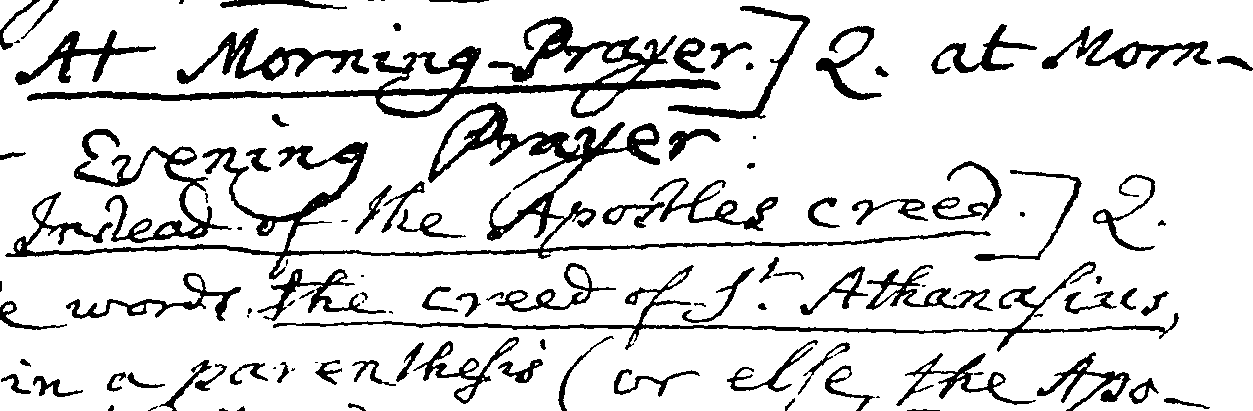 At Morning-Prayer.] Q. at Morn-
- Evening Prayer.
Instead of the Apostles creed.] Q.
e words the creed of St. Athanasius,
in a parenthesis (or else, the Apo-